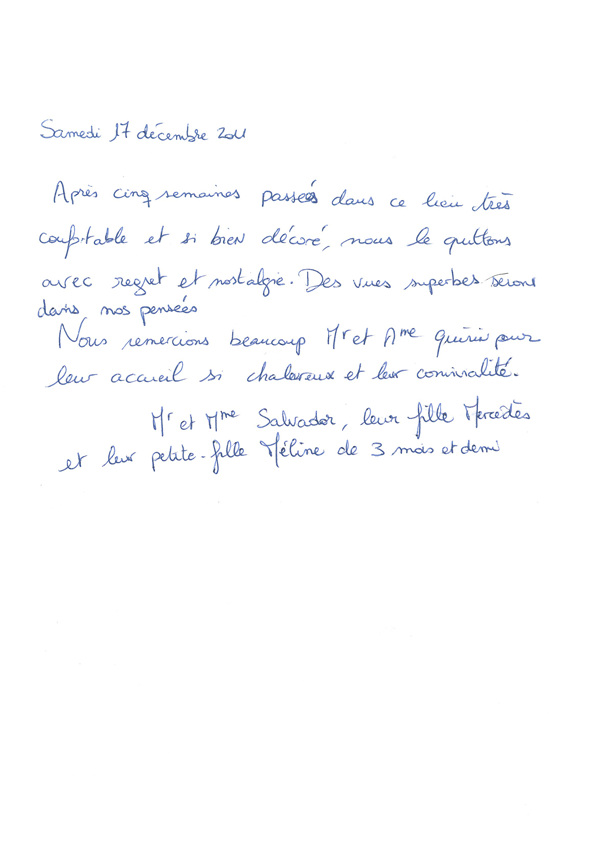 Samedi 17 décembre 2011
Après cinq semaines passées dans ce lieu très
confortable et si bien décoré, nous le quittons
avec regret et nostalgie. Des vues superbes seront
dans nos pensées
Nous remercions beaucoup Mr et Mme pour
leur accueil si chaleureux et leur convivialité.
Mr et Mme Salvador, leur fille Mercédès
et leur petite-fille Méline de 3 mois et demi